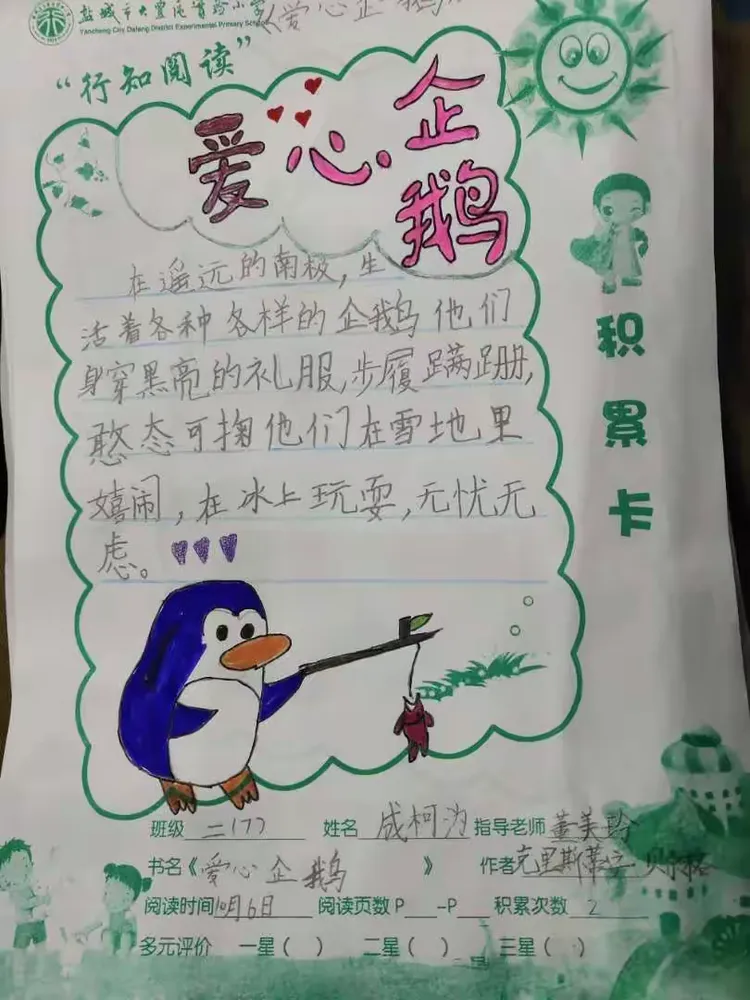 盐城市大丰区实验小学
Yancheng City Dafeng District Experimental Primary School
《爱心企鹅》
“行知阅读”
爱心.企
鹅
在遥远的南极,生
活着各种各样的企鹅他们
身穿黑亮的礼服,步履蹒跚,
憨态可掬他们在雪地里
嬉闹,在冰上玩耍,无忧无
虑。
积累卡
班级 二(7) 姓名 成柯 指导老师 董美玲
书名《爱心企鹅》 作者 克里斯蒂
阅读时间 10月6日 阅读页数 P -P 积累次数 2
多元评价 一星( ) 二星( ) 三星( )